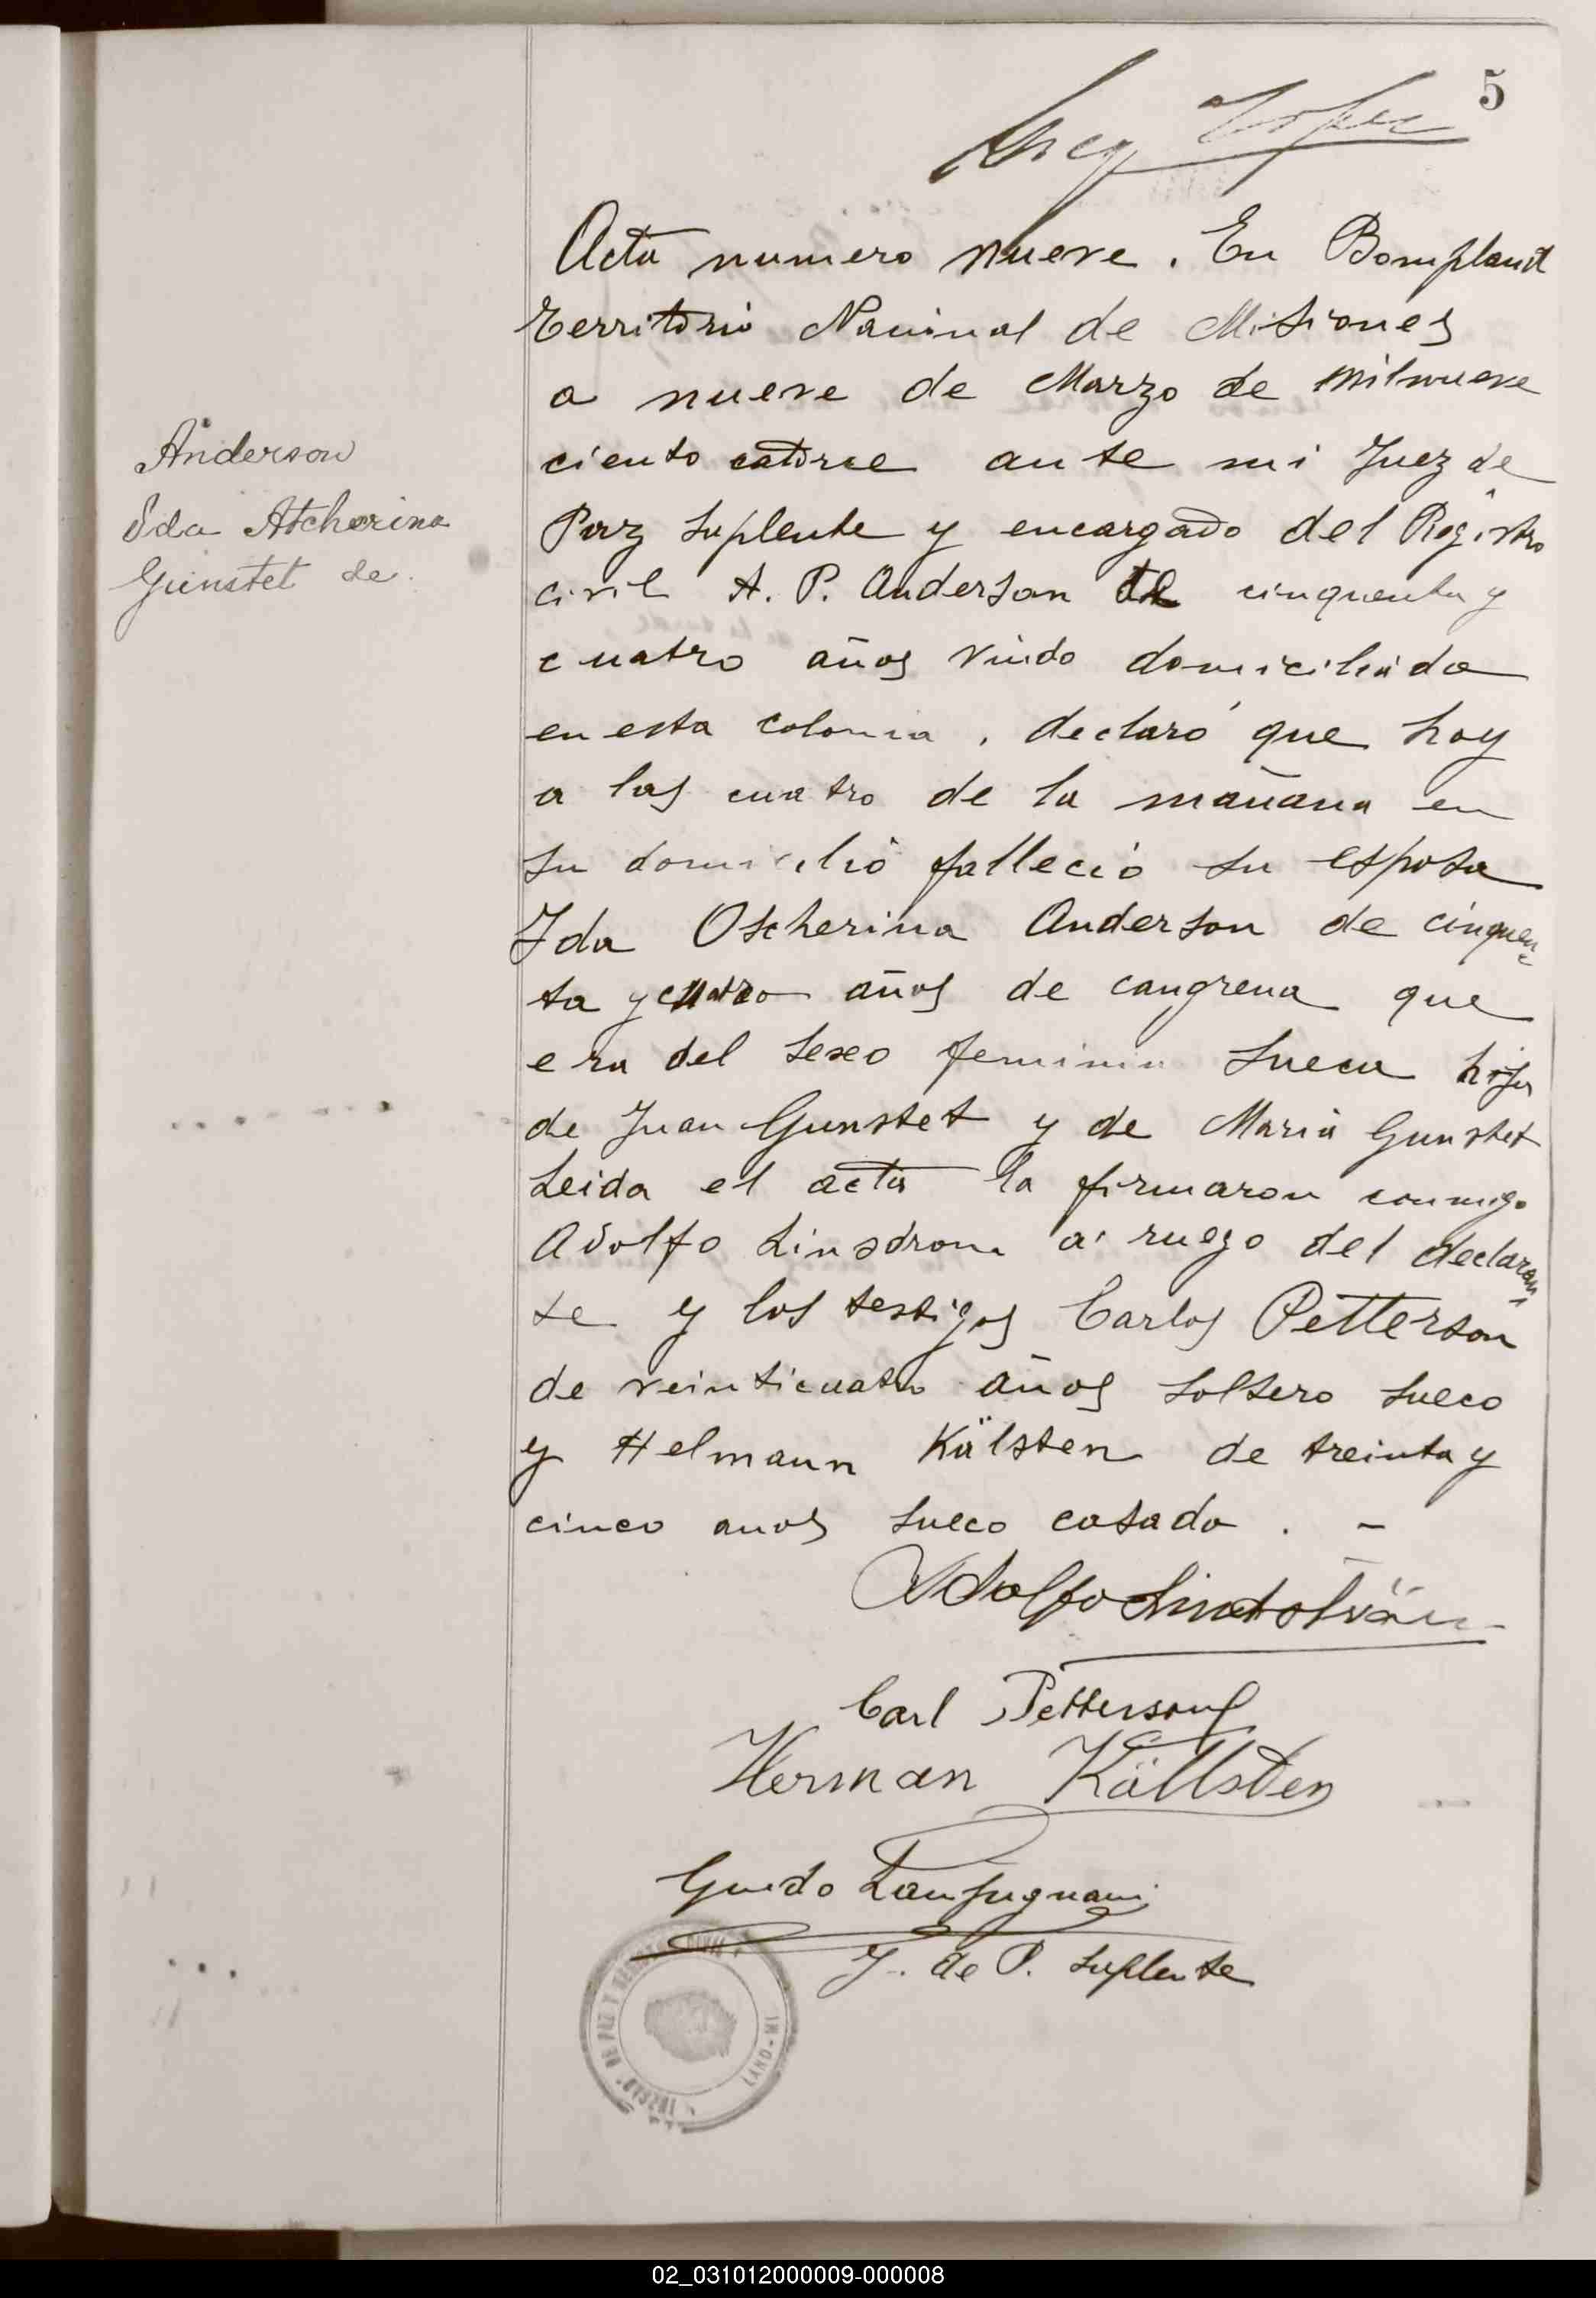 5
Acta numero nueve. En Bompland
Territorio Nacional de Misiones
a nueve de Marzo de milnueve
ciento catorce ante mi Juez de
Anderson
Ida Atcherina
Gunstet de.
Paz Suplente y encargado del Registro
civil A. P. Anderson de cinquenta y
cuatro años viudo domiciliado
en esta colonia, declaró que hoy
a las cuatro de la mañana en
su domicilio falleció su esposa
Ida Oscherina Anderson de cinquen-
ta y cuatro años de cangrena que
era del sexo feminin sueca hija
de Juan Gunstet y de Maria Gunstet
Leida el acta la firmaron conmigo
Adolfo Linsdrom a ruego del declaran-
te y los testigos Carlos Petterson
de veinticuatro años soltero sueco
y Helmann Kälsten de treinta y
cinco anos sueco casado. -
Adolfo Lindström
Carl Petterson
Herman Källsten
Guido Lampugnani
J. de P. Suplente
JUZGADO DE PAZ Y REGISTRO CIVIL
LAND-MI
02_031012000009-000008